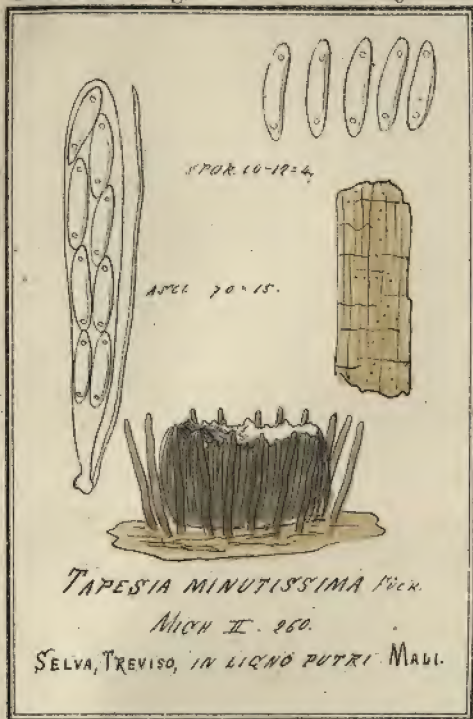 SPOR. 10-12=4,
ASCI 70=15.
TAPESIA MINUTISSIMA FUCK.
MICH II. 260.
SELVA, TREVISO, IN LIGNO PUTRI MALI.